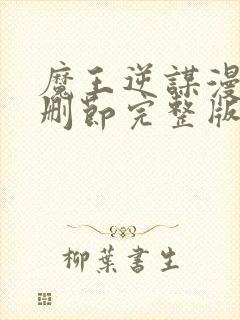 魔王逆謀漫
刪節完整版
柳葉書生